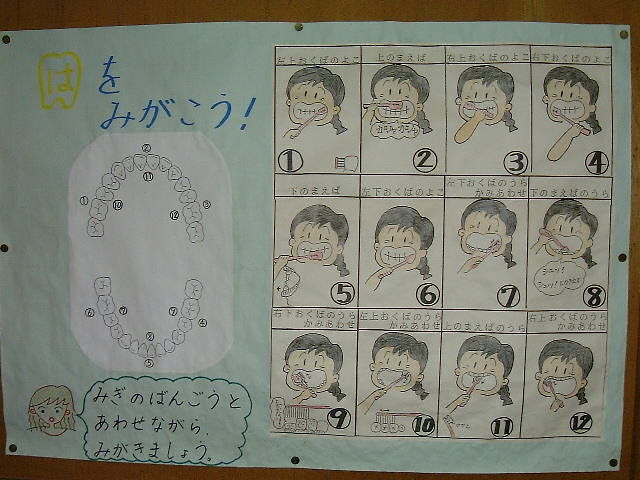 はを
みがこう!
左上おくばのよこ
上のまえば
右上おくばのよこ
右下おくばのよこ
①
②
③
④
下のまえば
左下おくばのよこ
左下おくばのうら
かみあわせ
下のまえばのうら
⑤
⑥
⑦
⑧
右下おくばのうら
かみあわせ
左上おくばのうら
かみあわせ
上のまえばのうら
右上おくばのうら
かみあわせ
⑨
⑩
⑪
⑫
②
⑪
①
⑩
⑫
③
⑥
⑦
④
⑧
⑤
みぎのばんごうと
あわせながら、
みがきましょう。